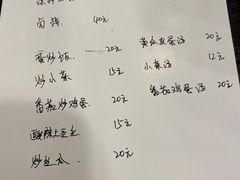 卤拼 40元
蛋炒饭 20元
黄瓜皮蛋汤 20元
炒小菜 15元
小菜汤 12元
番茄炒鸡蛋 20元
番茄鸡蛋汤 20元
酸辣土豆丝 15元
炒丝瓜 20元